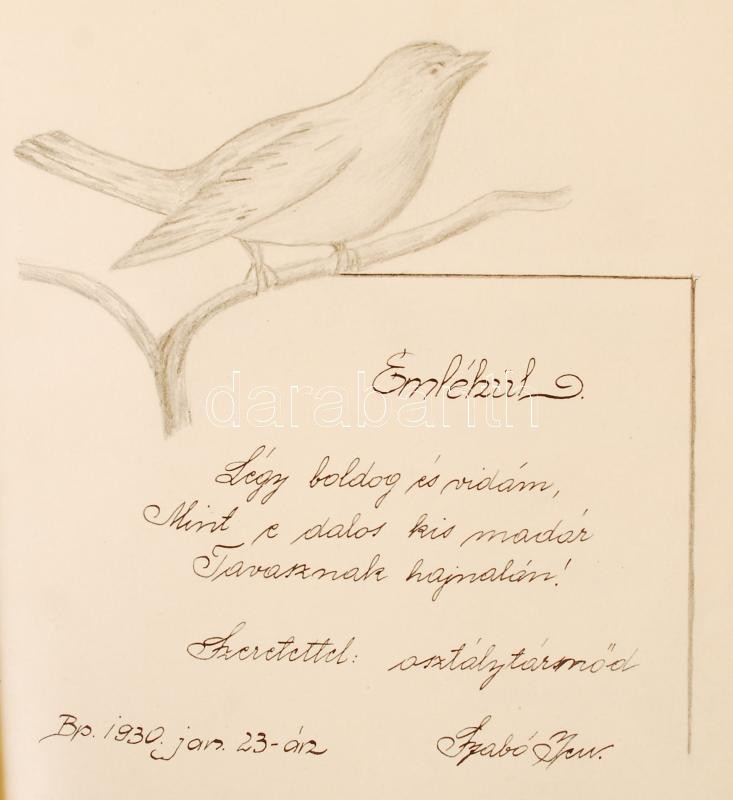 Emlékül.
darabanth
Légy boldog és vidám,
Mint e dalos kis madár
Tavasznak hajnalán!
Szeretettel: osztálytársnőd
Bp. 1930. jan. 23-án
Szabó